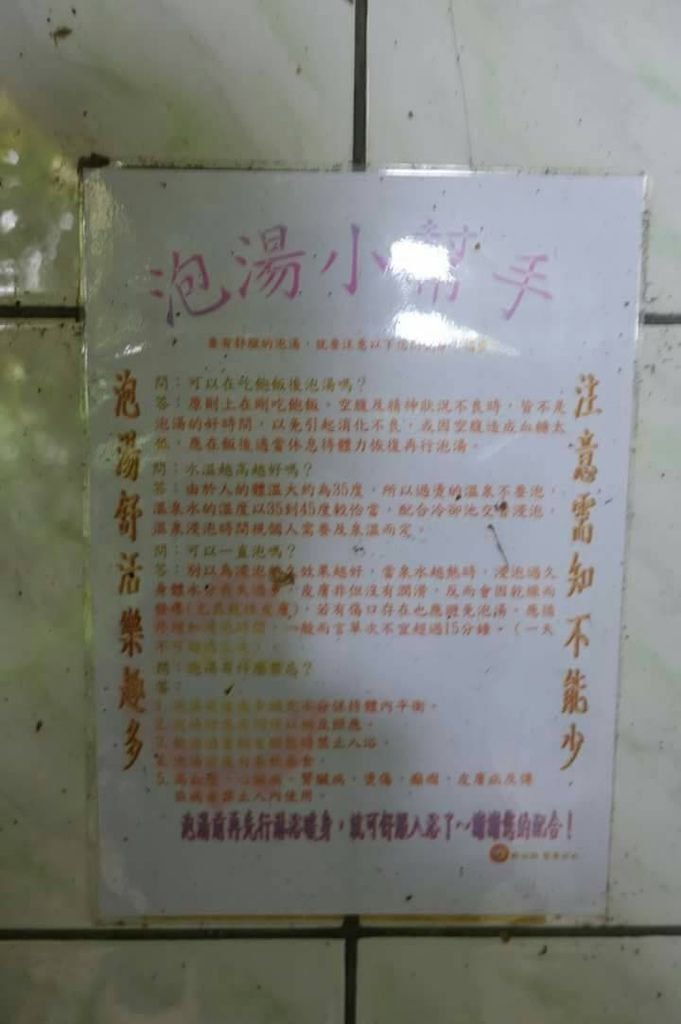 泡湯小幫手
要有舒服的泡湯，就要注意以下
泡湯舒活樂趣多
注意需知不能少
問：可以在吃飽飯後泡湯嗎？
答：原則上在剛吃飽飯、空腹及精神狀況不良時，皆不是
泡湯的好時間，以免引起消化不良，或因空腹造成血糖太
低，應在飯後適當休息待體力恢復再行泡湯。
問：水溫越高越好嗎？
答：由於人的體溫大約為35度，所以過燙的溫泉不要泡，
溫泉水的溫度以35到45度較恰當，配合冷卻池交替浸泡，
溫泉浸泡時間視個人需要及泉溫而定。
問：可以一直泡嗎？
答：別以為浸泡越久效果越好，當泉水越熱時，浸泡過久
身體水分，皮膚非但沒有潤滑，反而會因乾燥而
，若有傷口存在也應避免泡湯。應
，一般而言單次不宜超過15分鐘。（一天
問：泡湯有什麼禁忌？
答：
1. 水分保持體內平衡。
2.
3. 時禁止入浴。
4.
5. 高血壓、心臟病、腎臟病、燙傷、癲癇、皮膚病及傳
染病者禁止入內使用。
泡湯前再先行淋浴暖身，就可舒服入浴了~謝謝您的配合！